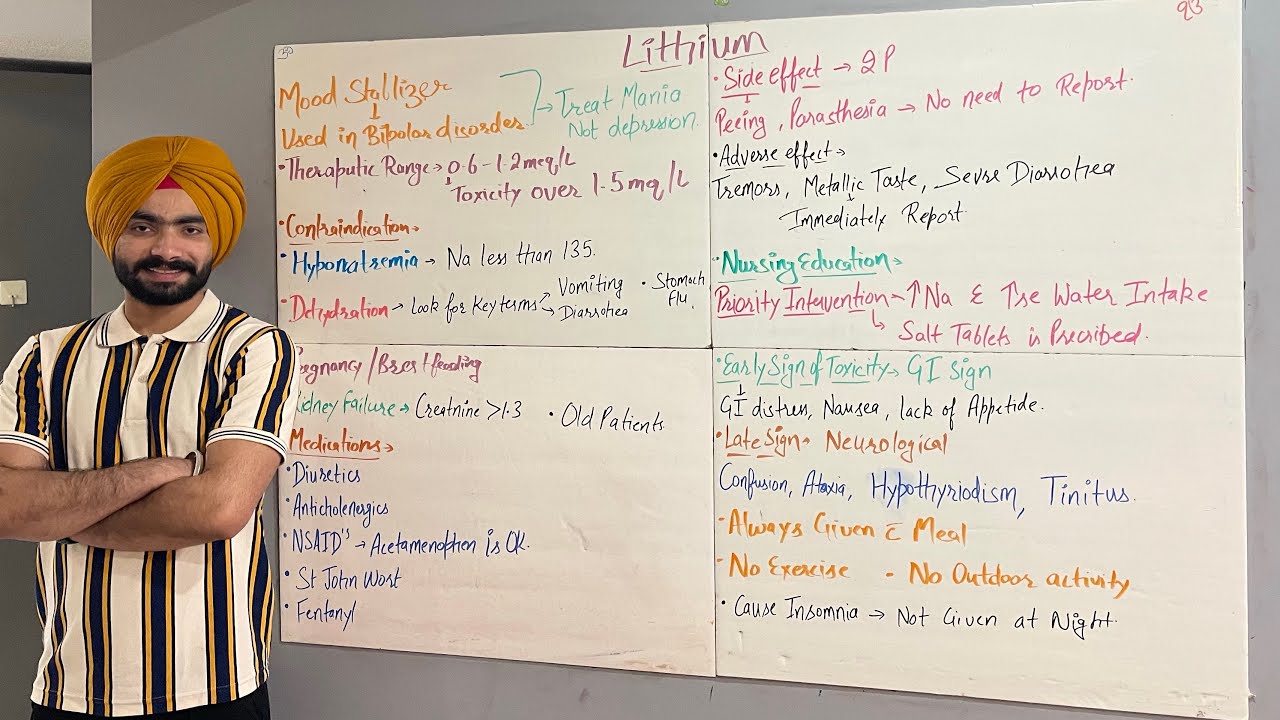 Lithium
Mood Stallizer
Used in Bipolar disorder
Treat Mania
Not depression.
• Theraputic Range → 0.6 - 1.2 meq/L
Toxicity over 1.5 mq/L
• Contraindication →
• Hyponatremia → Na less than 135.
• Dehydration → Look for Key terms
Vomiting
Diarrohea
• Stomach
flu.
Pregnancy / Brest feeding
Kidney Failure → Creatnine >1.3
• Old Patients
• Medications →
• Diuretics
• Anticholenergics
• NSAID's → Acetamenophen is OK.
• St John Wort
• Fentanyl
• Side effect → 2P
Peeing, Parasthesia → No need to Report.
• Adverse effect →
Tremors, Metallic Taste, Sevre Diarrohea
Immediately Report
• Nursing Education →
Priority Intervention → ↑Na & ↑se Water Intake
Salt Tablets is Precribed.
• Early Sign of Toxicity → GI Sign
GI distress, Nausea, lack of Appetide.
• Late Sign → Neurological
Confusion, Ataxia, Hypothyriodism, Tinitus.
- Always Given c̄ Meal
- No Exercise - No Outdoor activity
• Cause Insomnia → Not Given at Night.